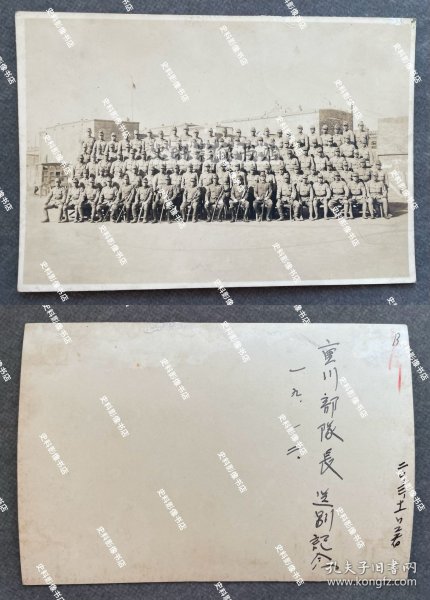 史料影像书店
重川部隊長送別記念
一九、一二、
孔夫子旧书网
www.kongfz.com